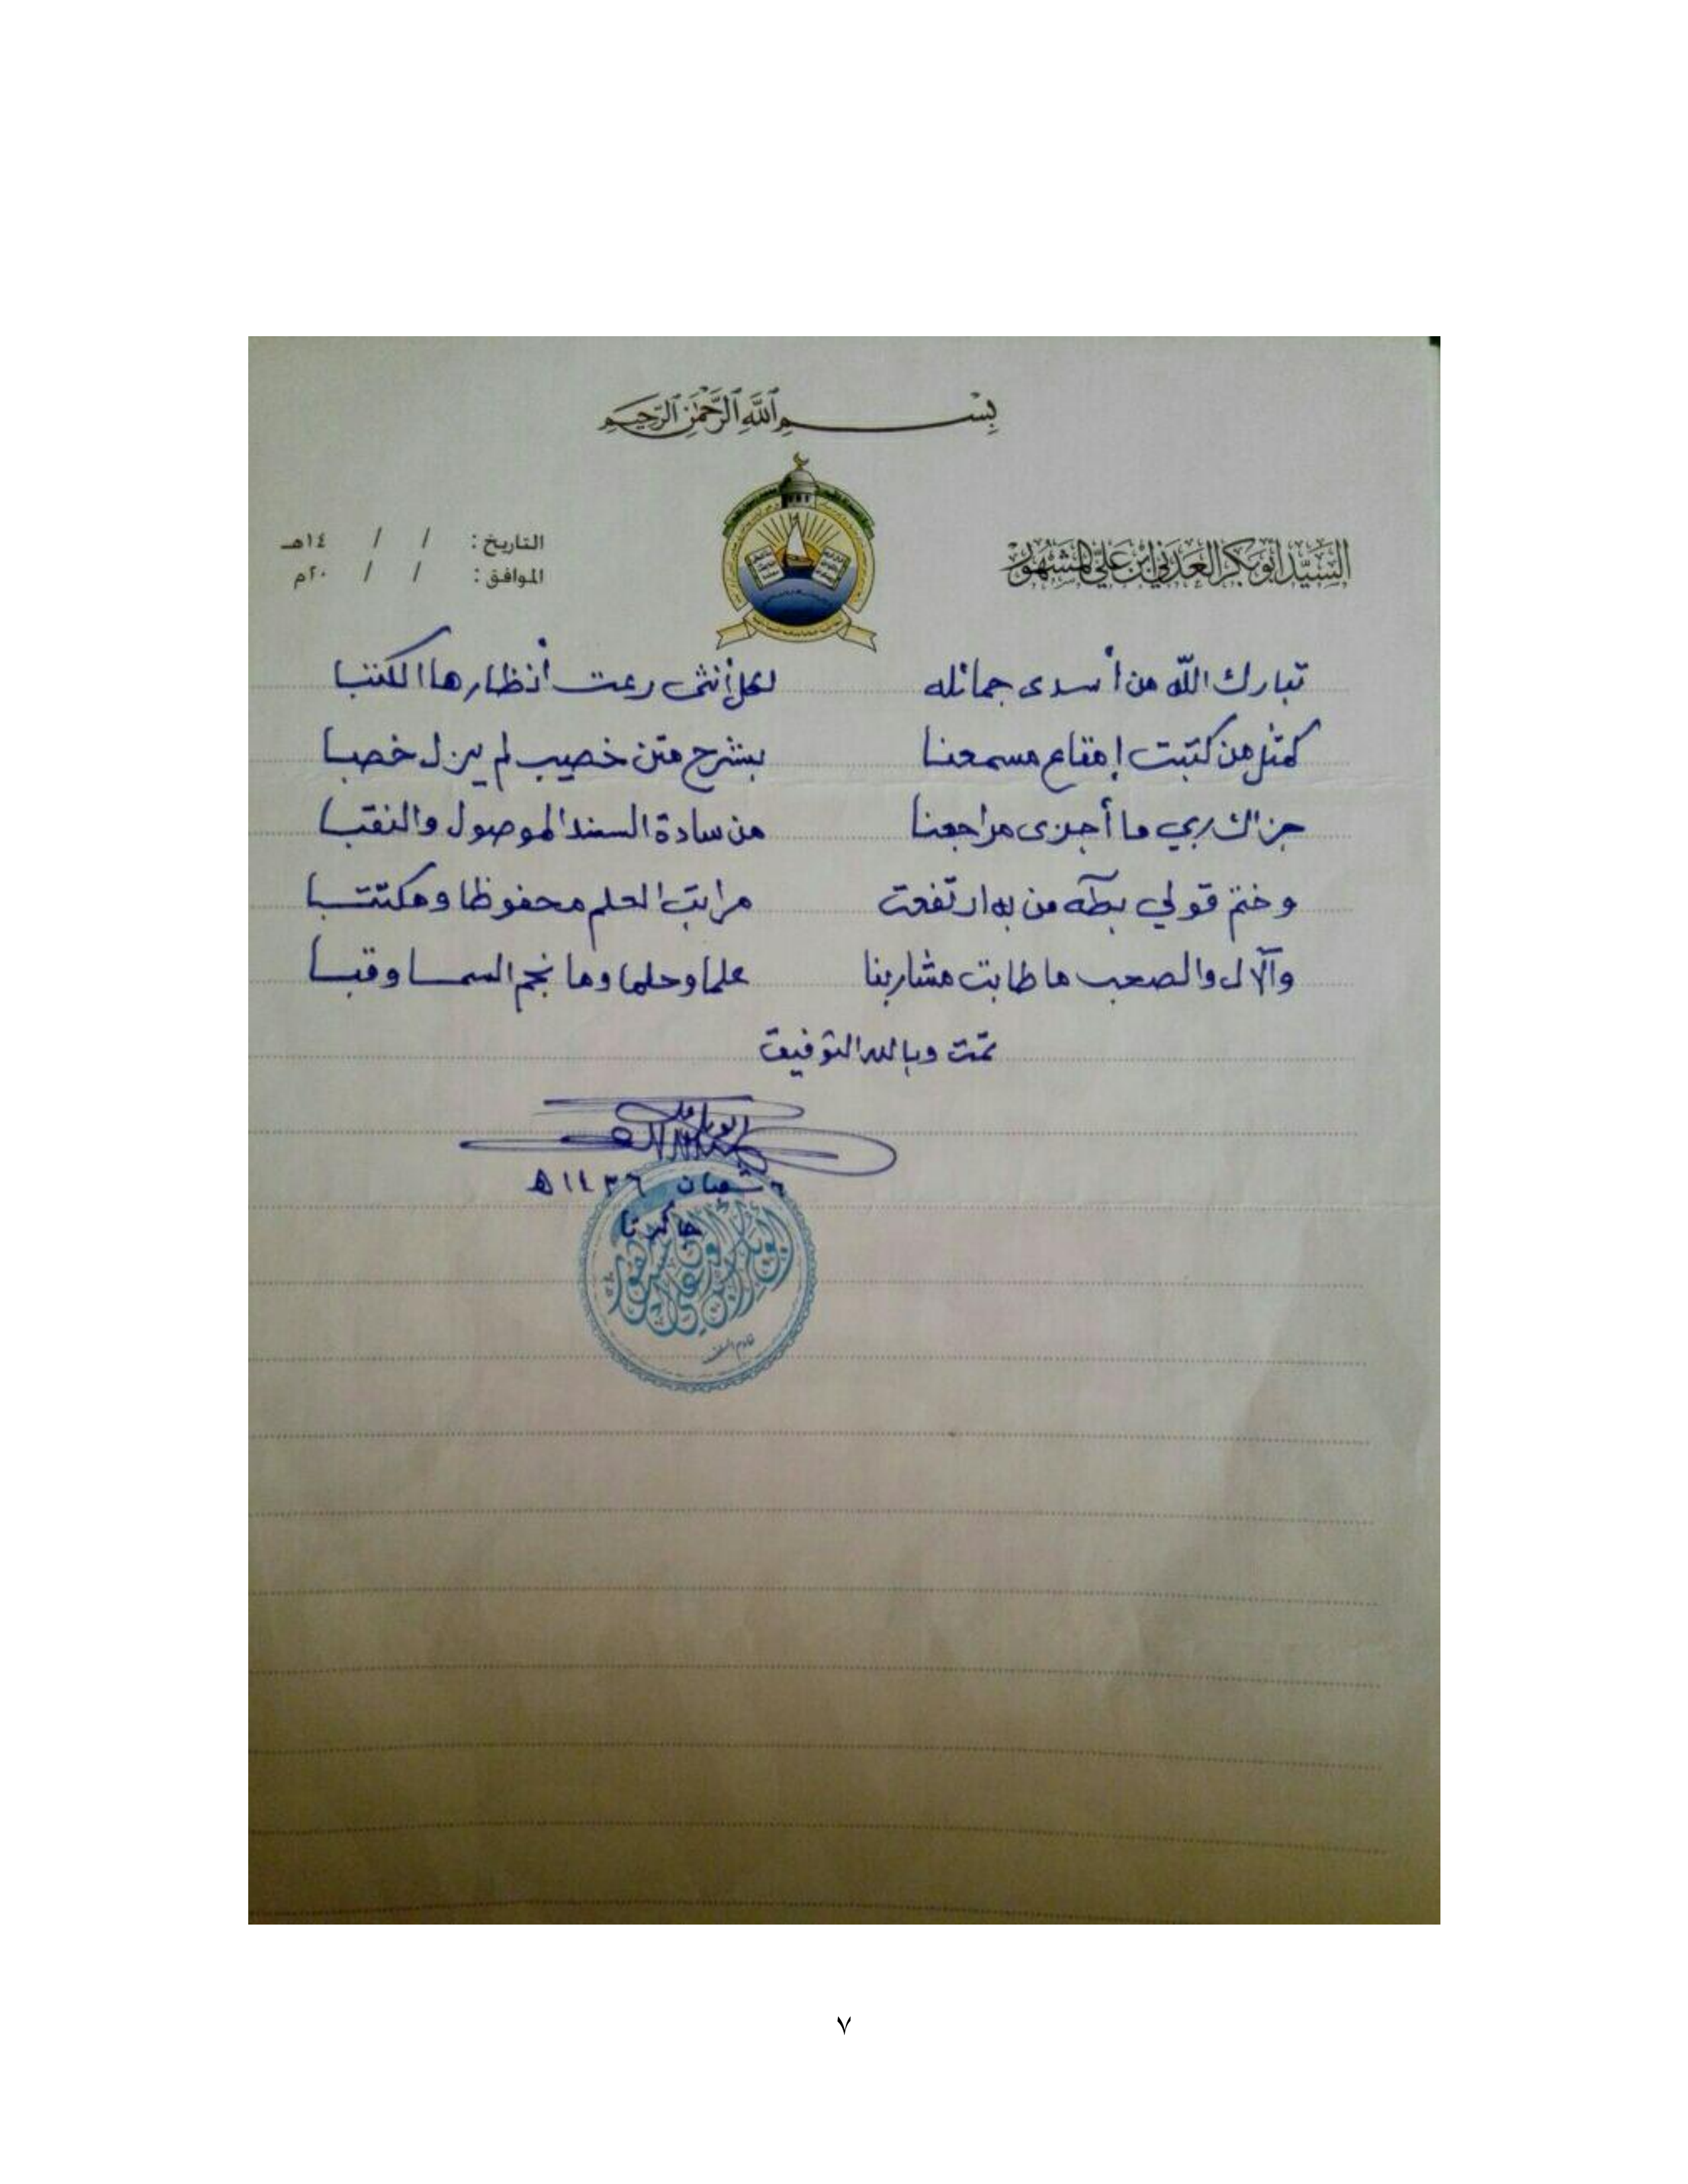 بسم الله الرحمن الرحيم
السيد أبو بكر العدني ابن علي المشهور
التاريخ: / / ١٤هـ
الموافق: / / ٢٠م
تبارك الله من أسدى جمائله لكل أنثى رعت أنظارها الكتبا
كمثل من كتبت إمتاع مسمعنا بشرح متن خصيب لم يزل خصبا
جزاك ربي ما أجزى مراجعنا من سادة السند الموصول والنقبا
وختم قولي بطه من به ارتفعت مراتب العلم محفوظا ومكتتبا
والآل والصحب ما طابت مشاربنا علما وحلما وما نجم السما وقبا
تمت وبالله التوفيق
شعبان ١٤٣٦ هـ
جاكرتا
٧